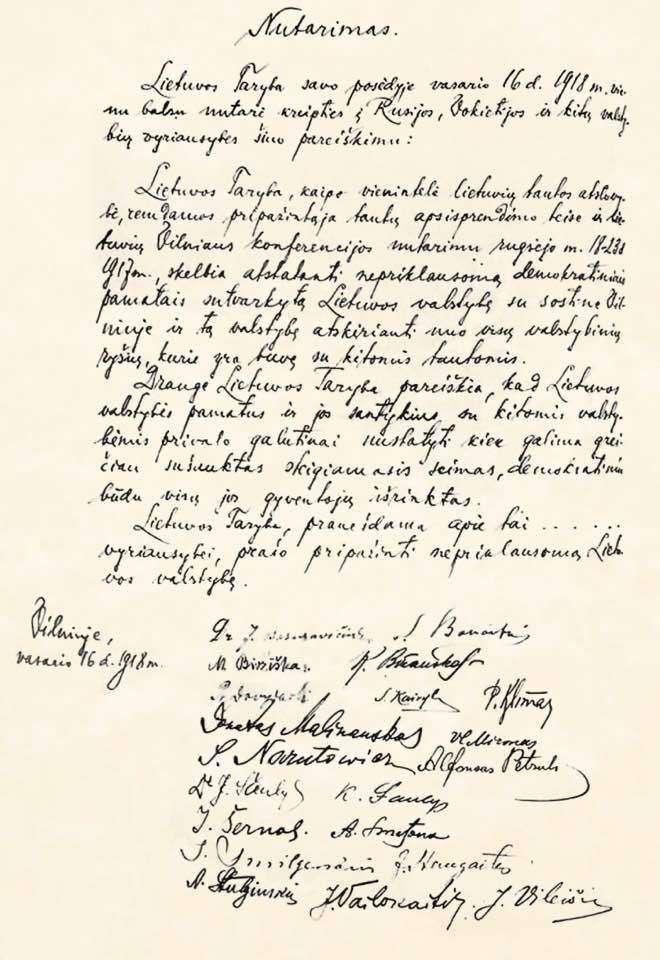 Nutarimas.
Lietuvos Taryba savo posėdyje vasario 16 d. 1918 m. vie-
nu balsu nutarė kreipties į Rusijos, Vokietijos ir kitų valsty-
bių vyriausybes šiuo pareiškimu:
Lietuvos Taryba, kaipo vienintelė lietuvių tautos atstovy-
bė, remdamos pripažintąja tautų apsisprendimo teise ir lie-
tuvių Vilniaus konferencijos nutarimu rugsėjo m. 18-23 d
1917 m., skelbia atstatanti nepriklausomą demokratiniais
pamatais sutvarkytą Lietuvos valstybę su sostine Vil-
niuje ir tą valstybę atskirianti nuo visų valstybinių
ryšių, kurie yra buvę su kitomis tautomis.
Drauge Lietuvos Taryba pareiškia, kad Lietuvos
valstybės pamatus ir jos santykius su kitomis valsty-
bėmis privalo galutinai nustatyti kiek galima grei-
čiau sušauktas steigiamasis seimas, demokratiniu
būdu visų jos gyventojų išrinktas.
Lietuvos Taryba, pranešdama apie tai . . . . . .
vyriausybei, prašo pripažinti nepriklausomą Lietu-
vos valstybę.
Vilniuje,
vasario 16 d. 1918 m.
Dr J. Basanavičius S. Banaitis
M. Biržiška K. Bizauskas
S. Kairys P. Klimas
Donatas Malinauskas Vl Mironas
S. Narutowicz Alfonsas Petrulis
Dr J. Šaulys K. Šaulys
J. Šernas. A. Smetona
J. Smilgevičius J. Staugaitis
A. Stulginskis J. Vailokaitis J. Vileišis